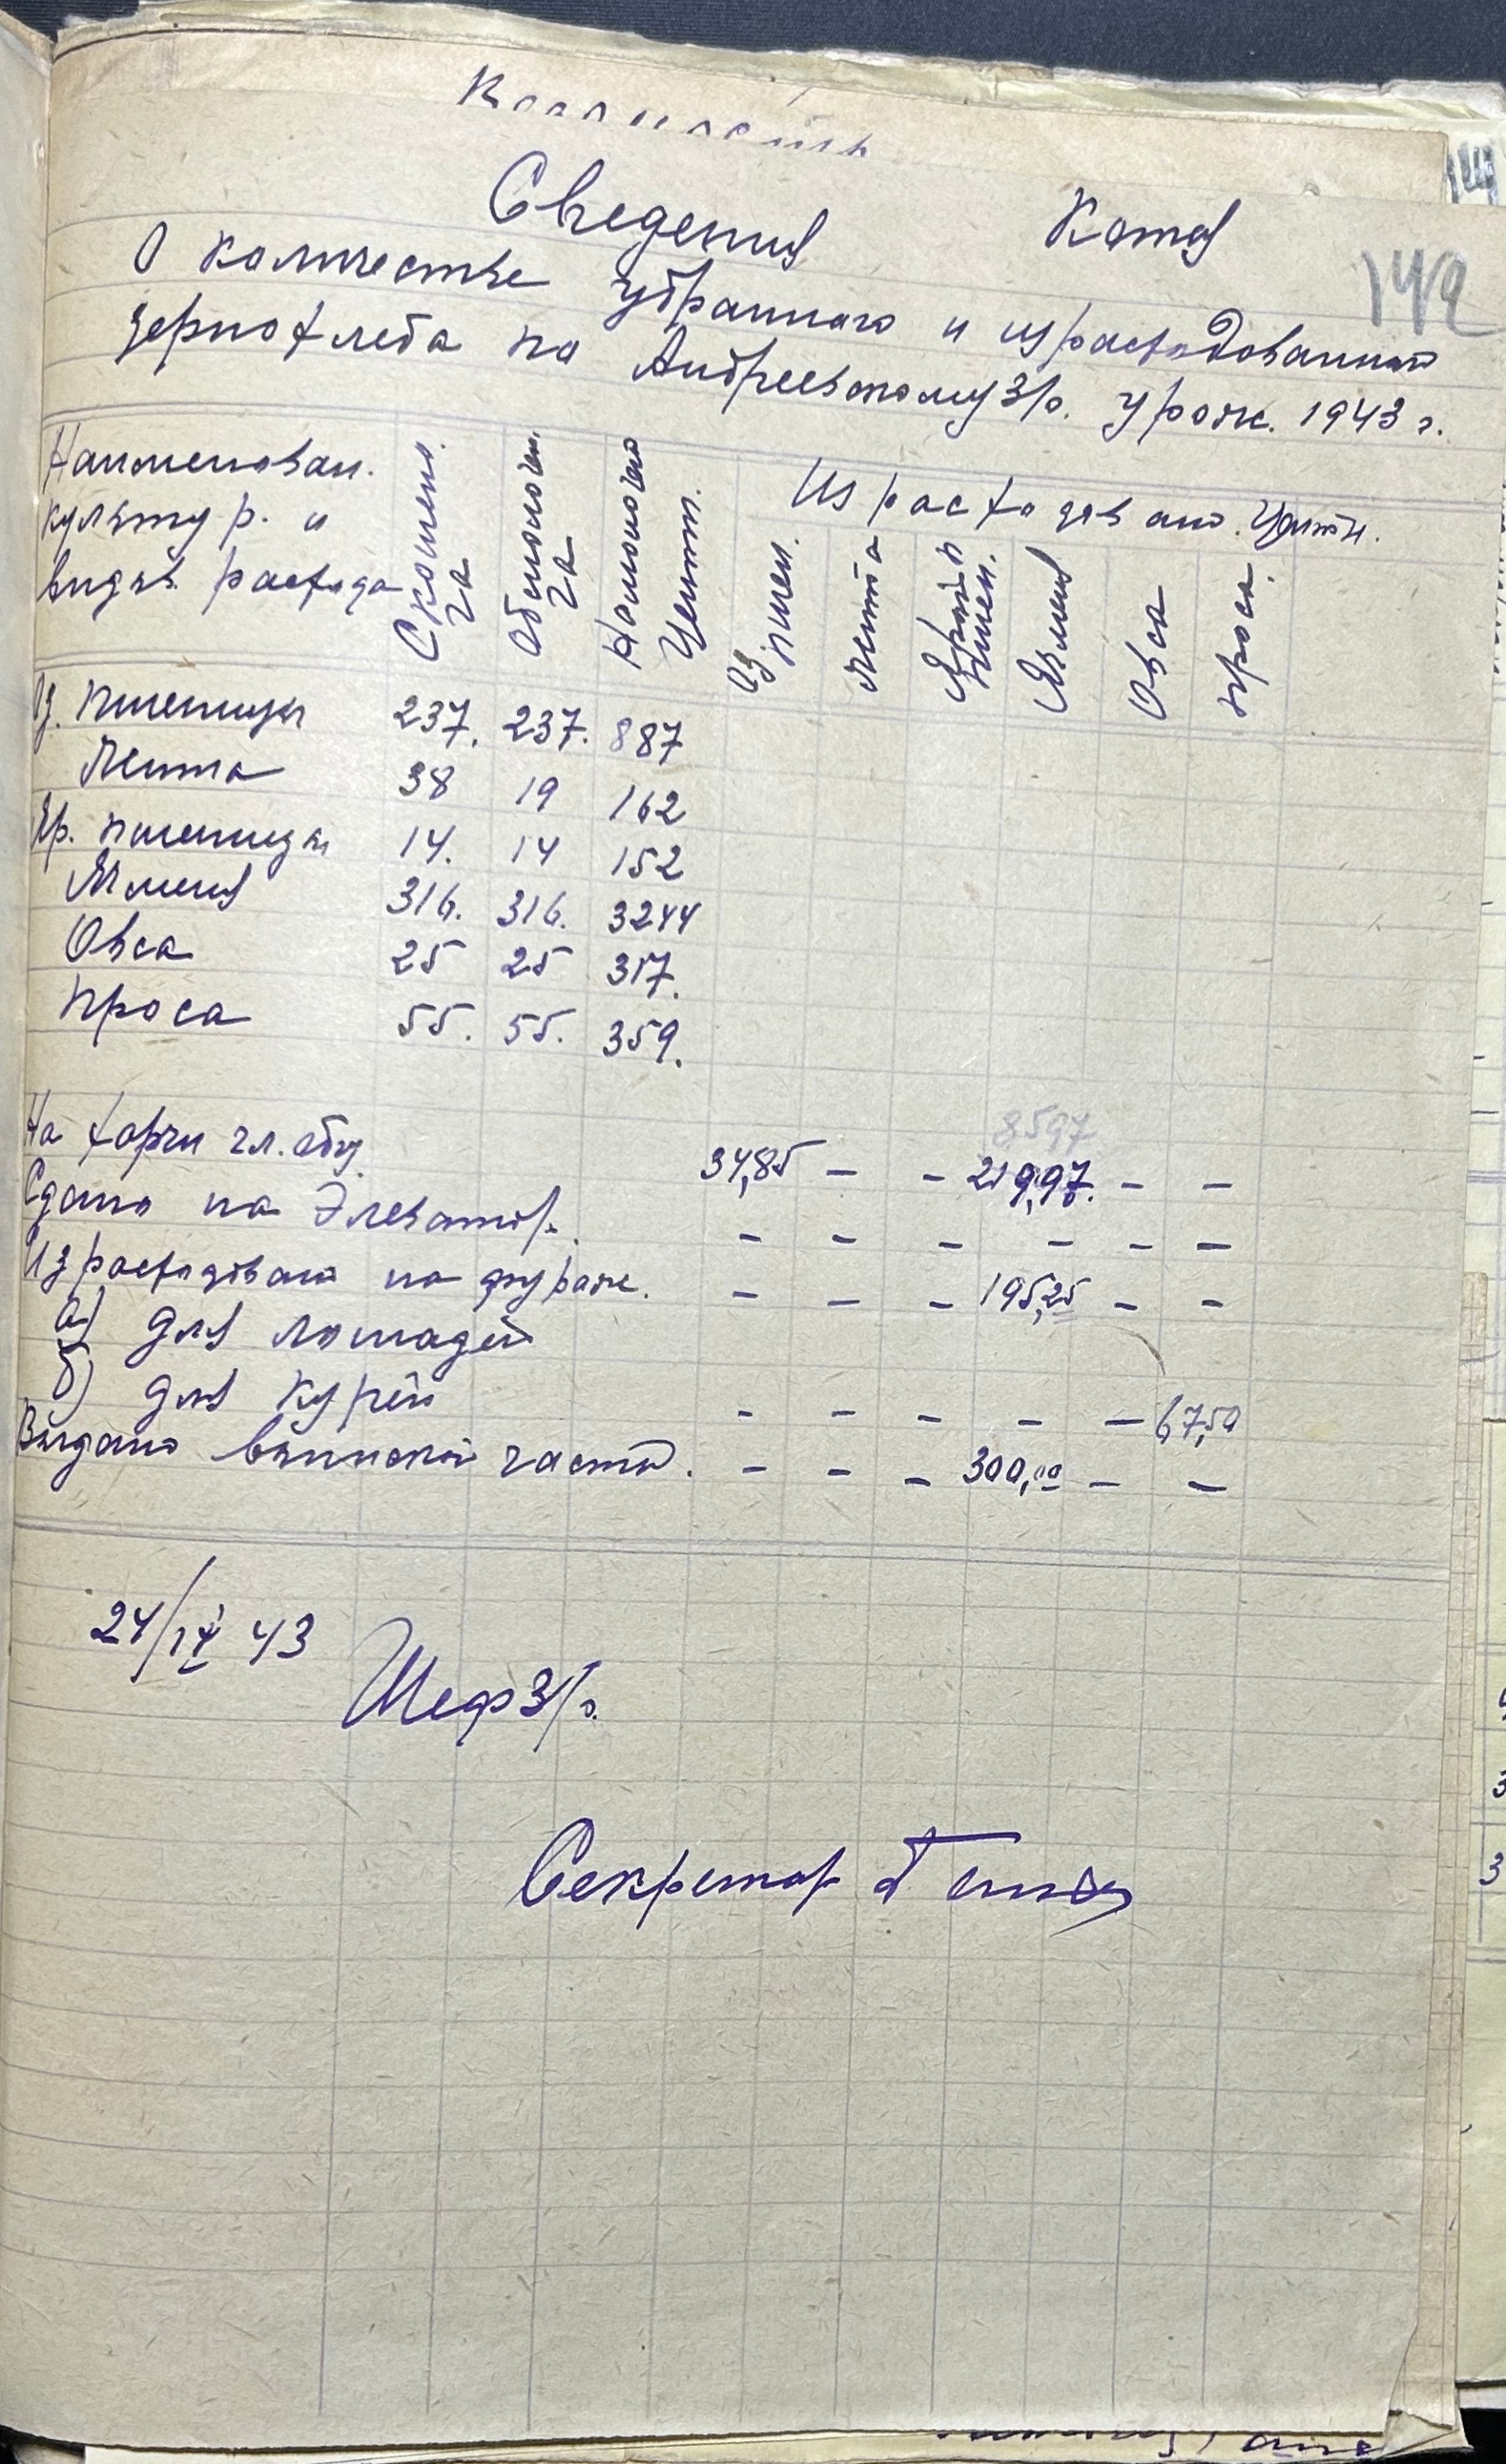 Сведения Копия
142
О количестве убранного и израсходованного
зернохлеба по Андреевскому З/о. урож. 1943 г.
Наименован. культур. и видов. расхода
Скошено. га
Обмолочен. га
Намолочено Центн.
Израсходовано. Центн.
Оз. пшен.
Яровой пшен.
Ячменя
Овса
Проса.
Оз. пшеницы 237. 237. 887
38 19 162
Яр. пшеницы 14. 14 152
Ячменя 316. 316. 3244
Овса 25 25 317.
Проса 55. 55. 359.
8597
На харчи гл. общ. 34,85 – – 219,97. – –
Сдано на Элеватор. – – – – – –
Израсходовано на фураж. – – – 195,25 – –
а) для лошадей
б) для курей – – – – – 67,50
Выдано воинской части. – – – 300,00 – –
24/IX 43
Шеф З/о.
Секретарь